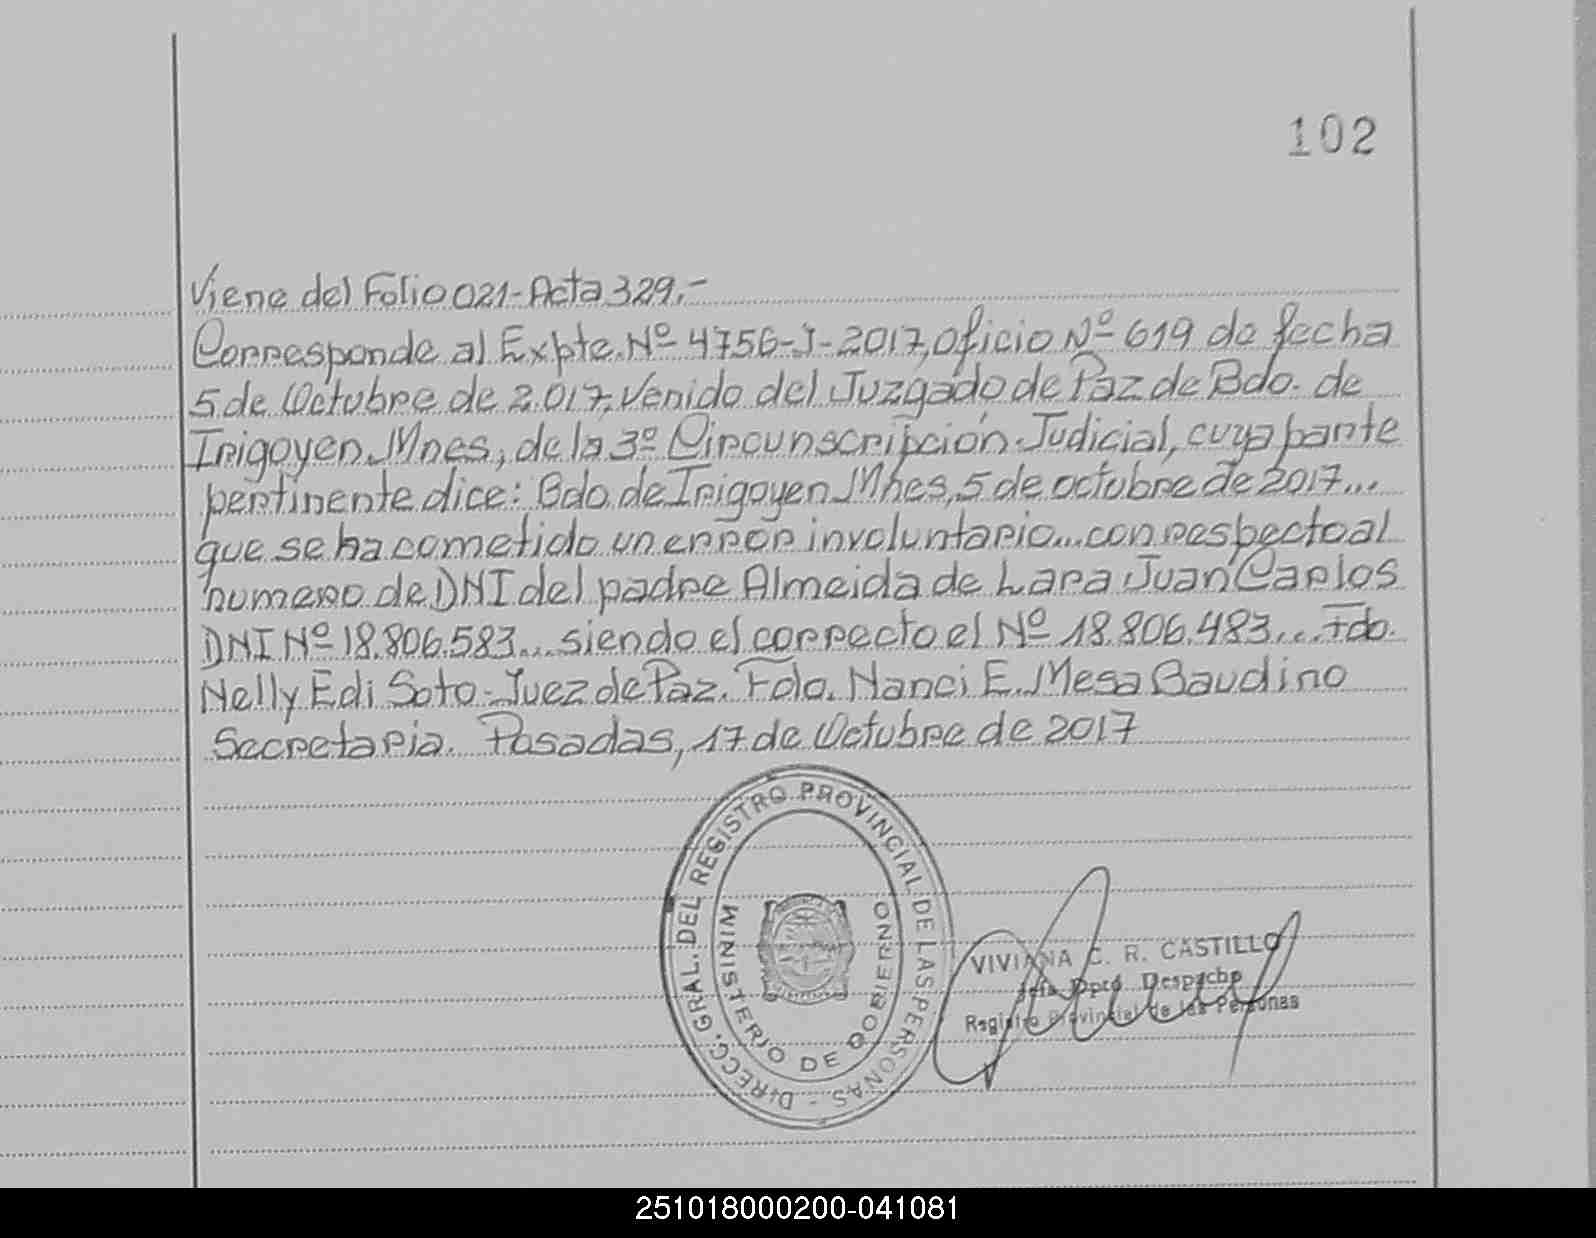 102
Viene del Folio 021-Acta 329.-
Corresponde al Expte. Nº 4756-J-2017, Oficio Nº 619 de fecha
5 de Octubre de 2.017, Venido del Juzgado de Paz de Bdo. de
Irigoyen Mnes, de la 3º Circunscripción Judicial, cuya parte
pertinente dice: Bdo. de Irigoyen Mnes, 5 de octubre de 2017...
que se ha cometido un error involuntario... con respecto al
numero de DNI del padre Almeida de Lara Juan Carlos
DNI Nº 18.806.583... siendo el correcto el Nº 18.806.483... Fdo.
Nelly Edi Soto-Juez de Paz. Fdo. Nanci E. Mesa Baudino
Secretaria. Posadas, 17 de Octubre de 2017
DIRECC. GRAL. DEL REGISTRO PROVINCIAL DE LAS PERSONAS -
MINISTERIO DE GOBIERNO
VIVIANA C. R. CASTILLO
Jefa Dpto Despacho
Registro Provincial de las Personas
251018000200-041081